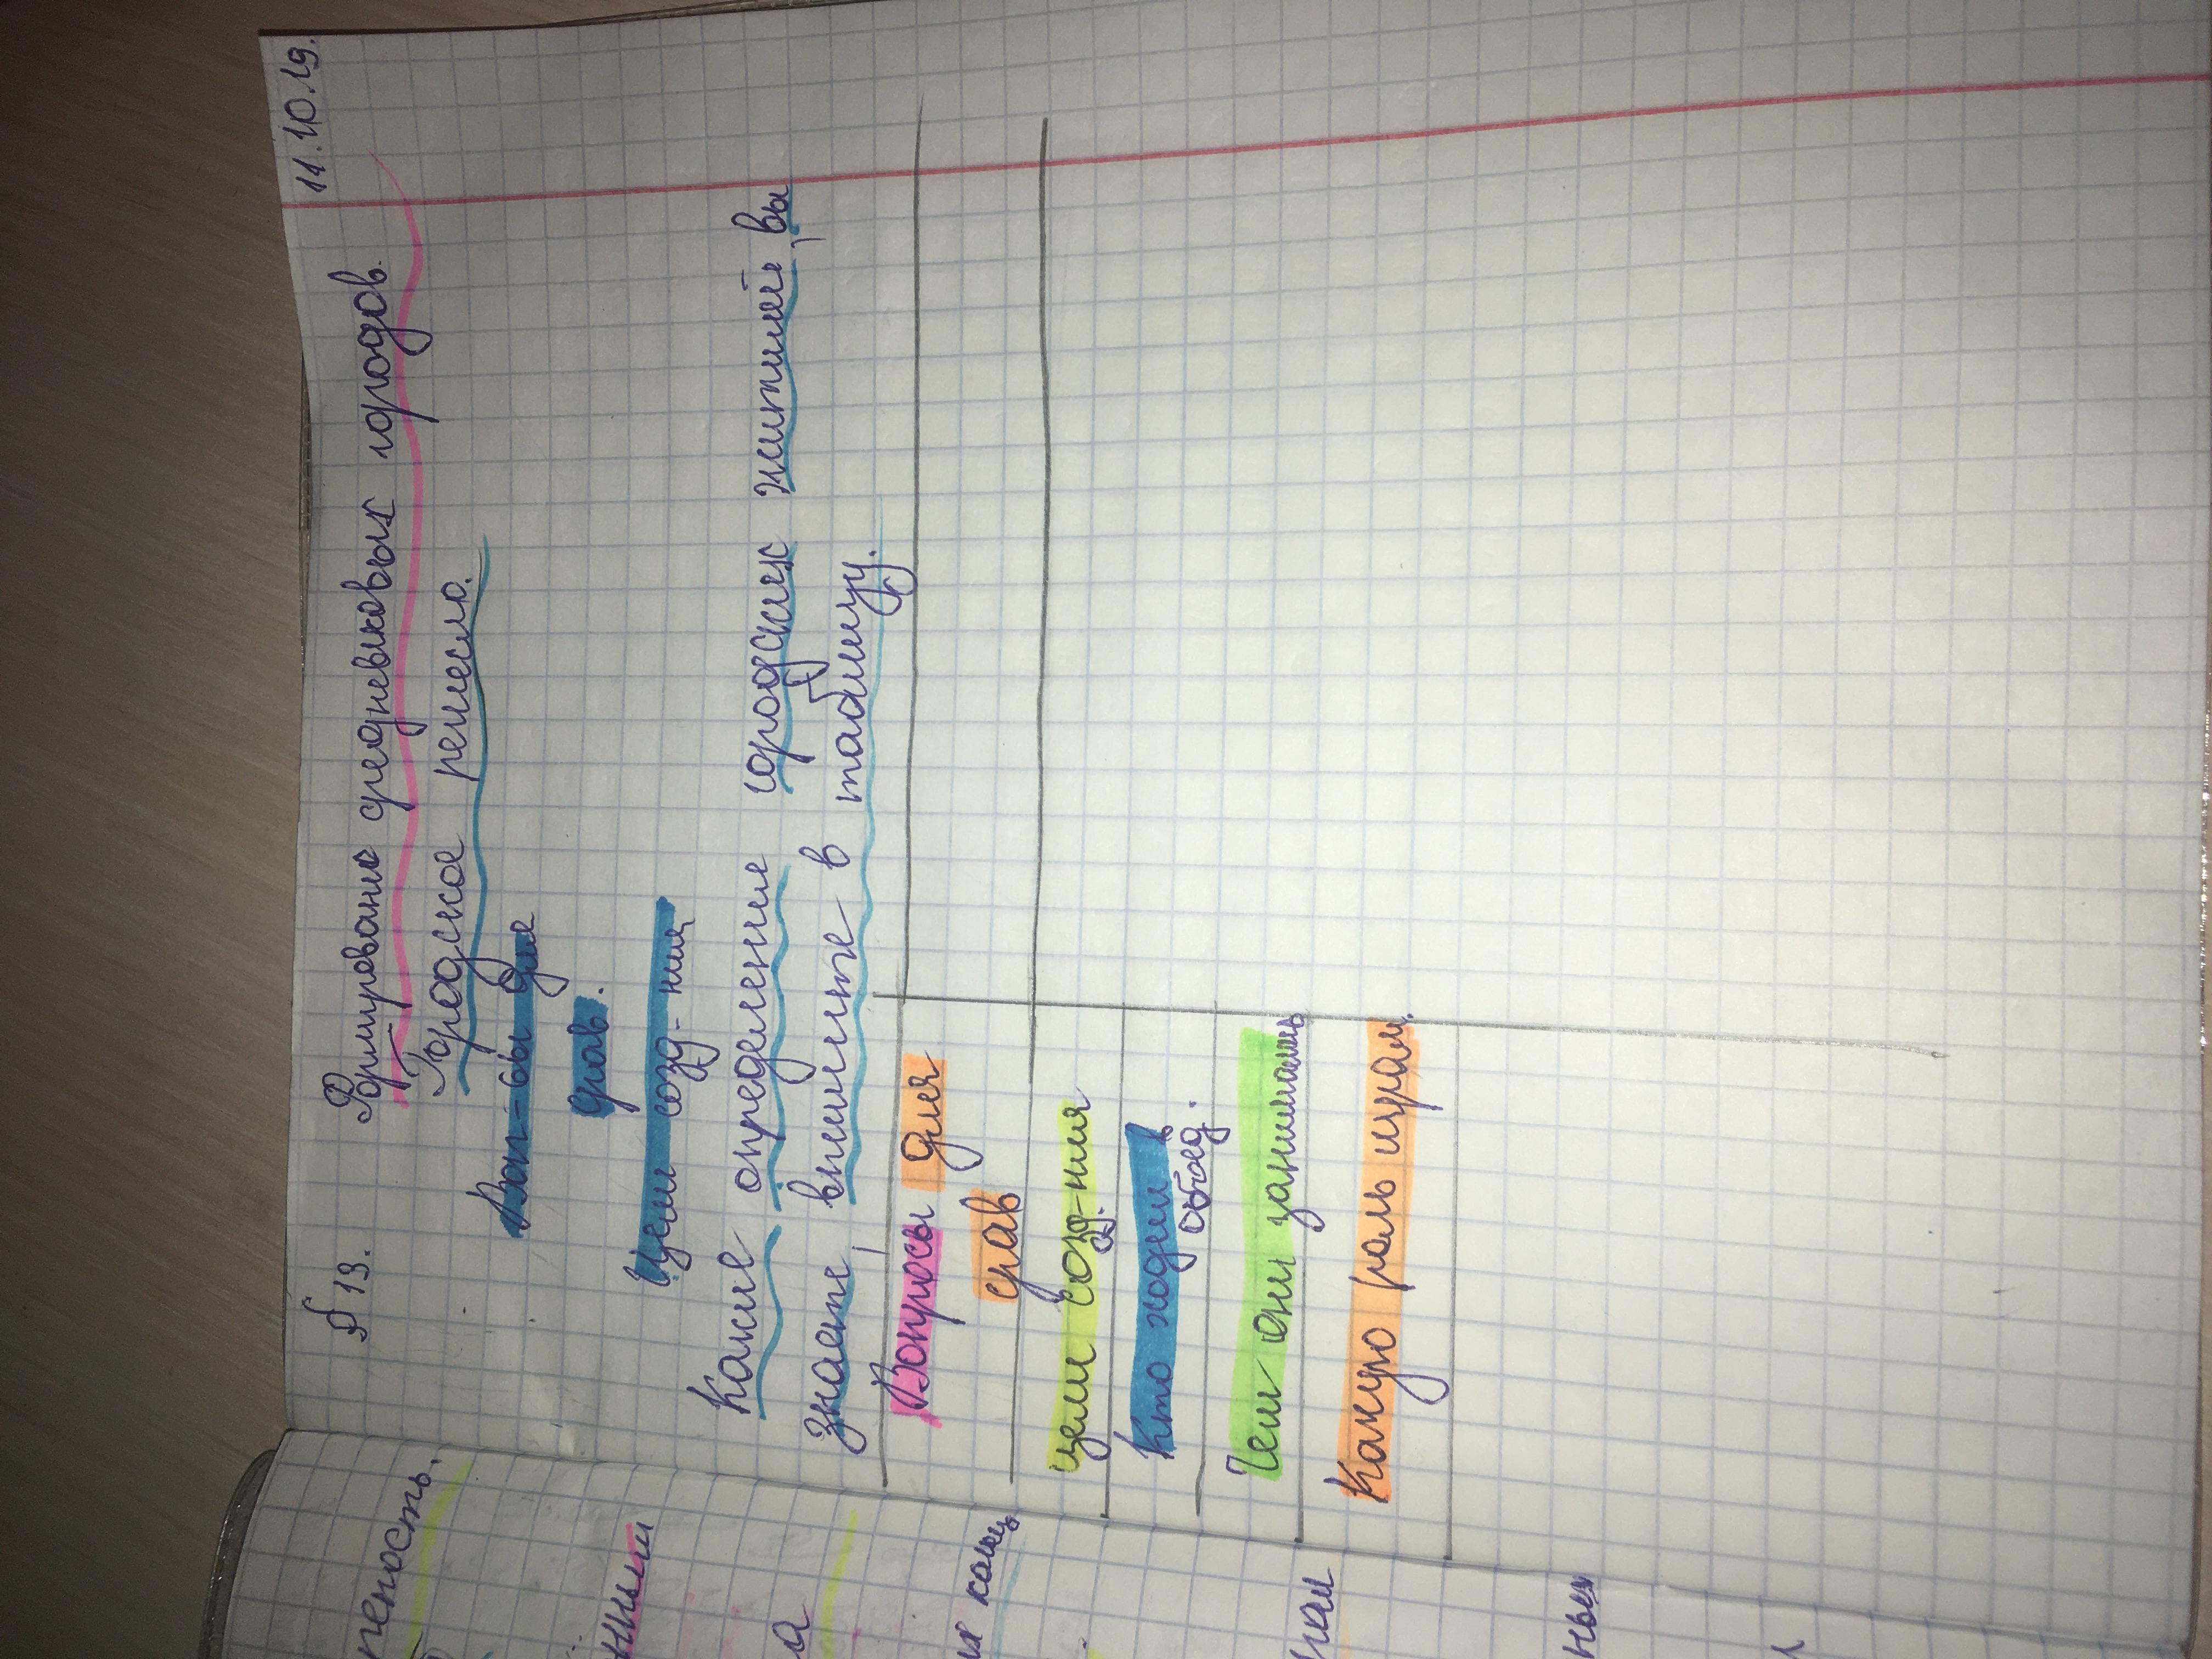 11.10.19.
§ 13. Формирование средневековых городов.
Городское ремесло.
Воп-сы для
срав.
Цели созд-ния
Какие определения городских жителей, вы
знаете, впишите в таблицу.
Вопросы для
срав
цели созд-ния
Кто ходил в
объед.
Чем они занимались
Какую роль играли.